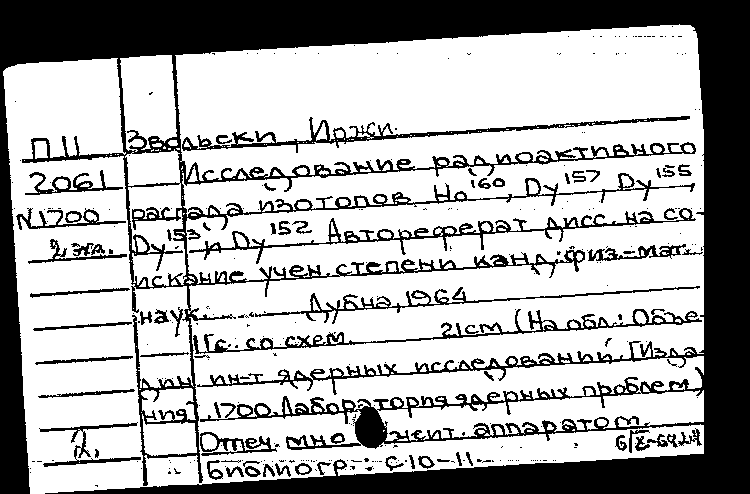 П 11 Звольски, Иржи.
2061 Исследование радиоактивного
N1700 распада изотопов Ho160, Dy157, Dy155,
2 экз. Dy153 и Dy152. Автореферат дисс. на со-
искание учен. степени канд. физ.-мат.
наук. Дубна, 1964
11 с. со схем. 21см (На обл.: Объе-
дин. ин-т ядерных исследований. [Изда-
ния]. 1700. Лаборатория ядерных проблем)
2. Отпеч. мно жит. аппаратом.
Библиогр.: с. 10-11.